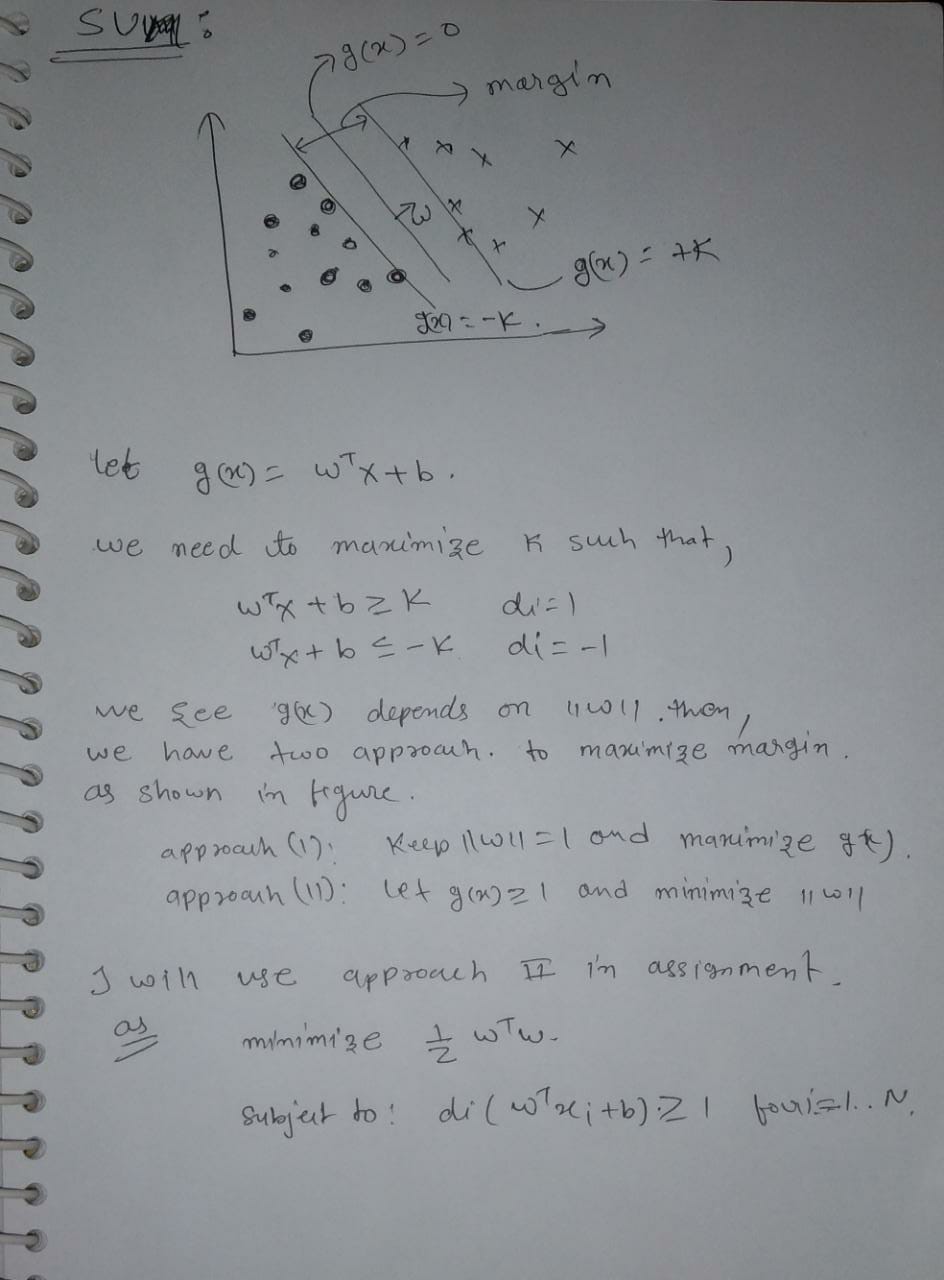 SVM :
g(x) = 0
margin
w
g(x) = +K
g(x) = -K.
let g(x) = wᵀx + b.
we need to maximize K such that,
wᵀx + b ≥ K di = 1
wᵀx + b ≤ -K di = -1
we see g(x) depends on ||w||. then,
we have two approach. to maximize margin.
as shown in figure.
approach (1): Keep ||w|| = 1 and maximize g(x).
approach (11): let g(x) ≥ 1 and minimize ||w||
I will use approach II in assignment.
as minimize 1/2 wᵀw.
subject to: di (wᵀxi + b) ≥ 1 for i = 1..N.